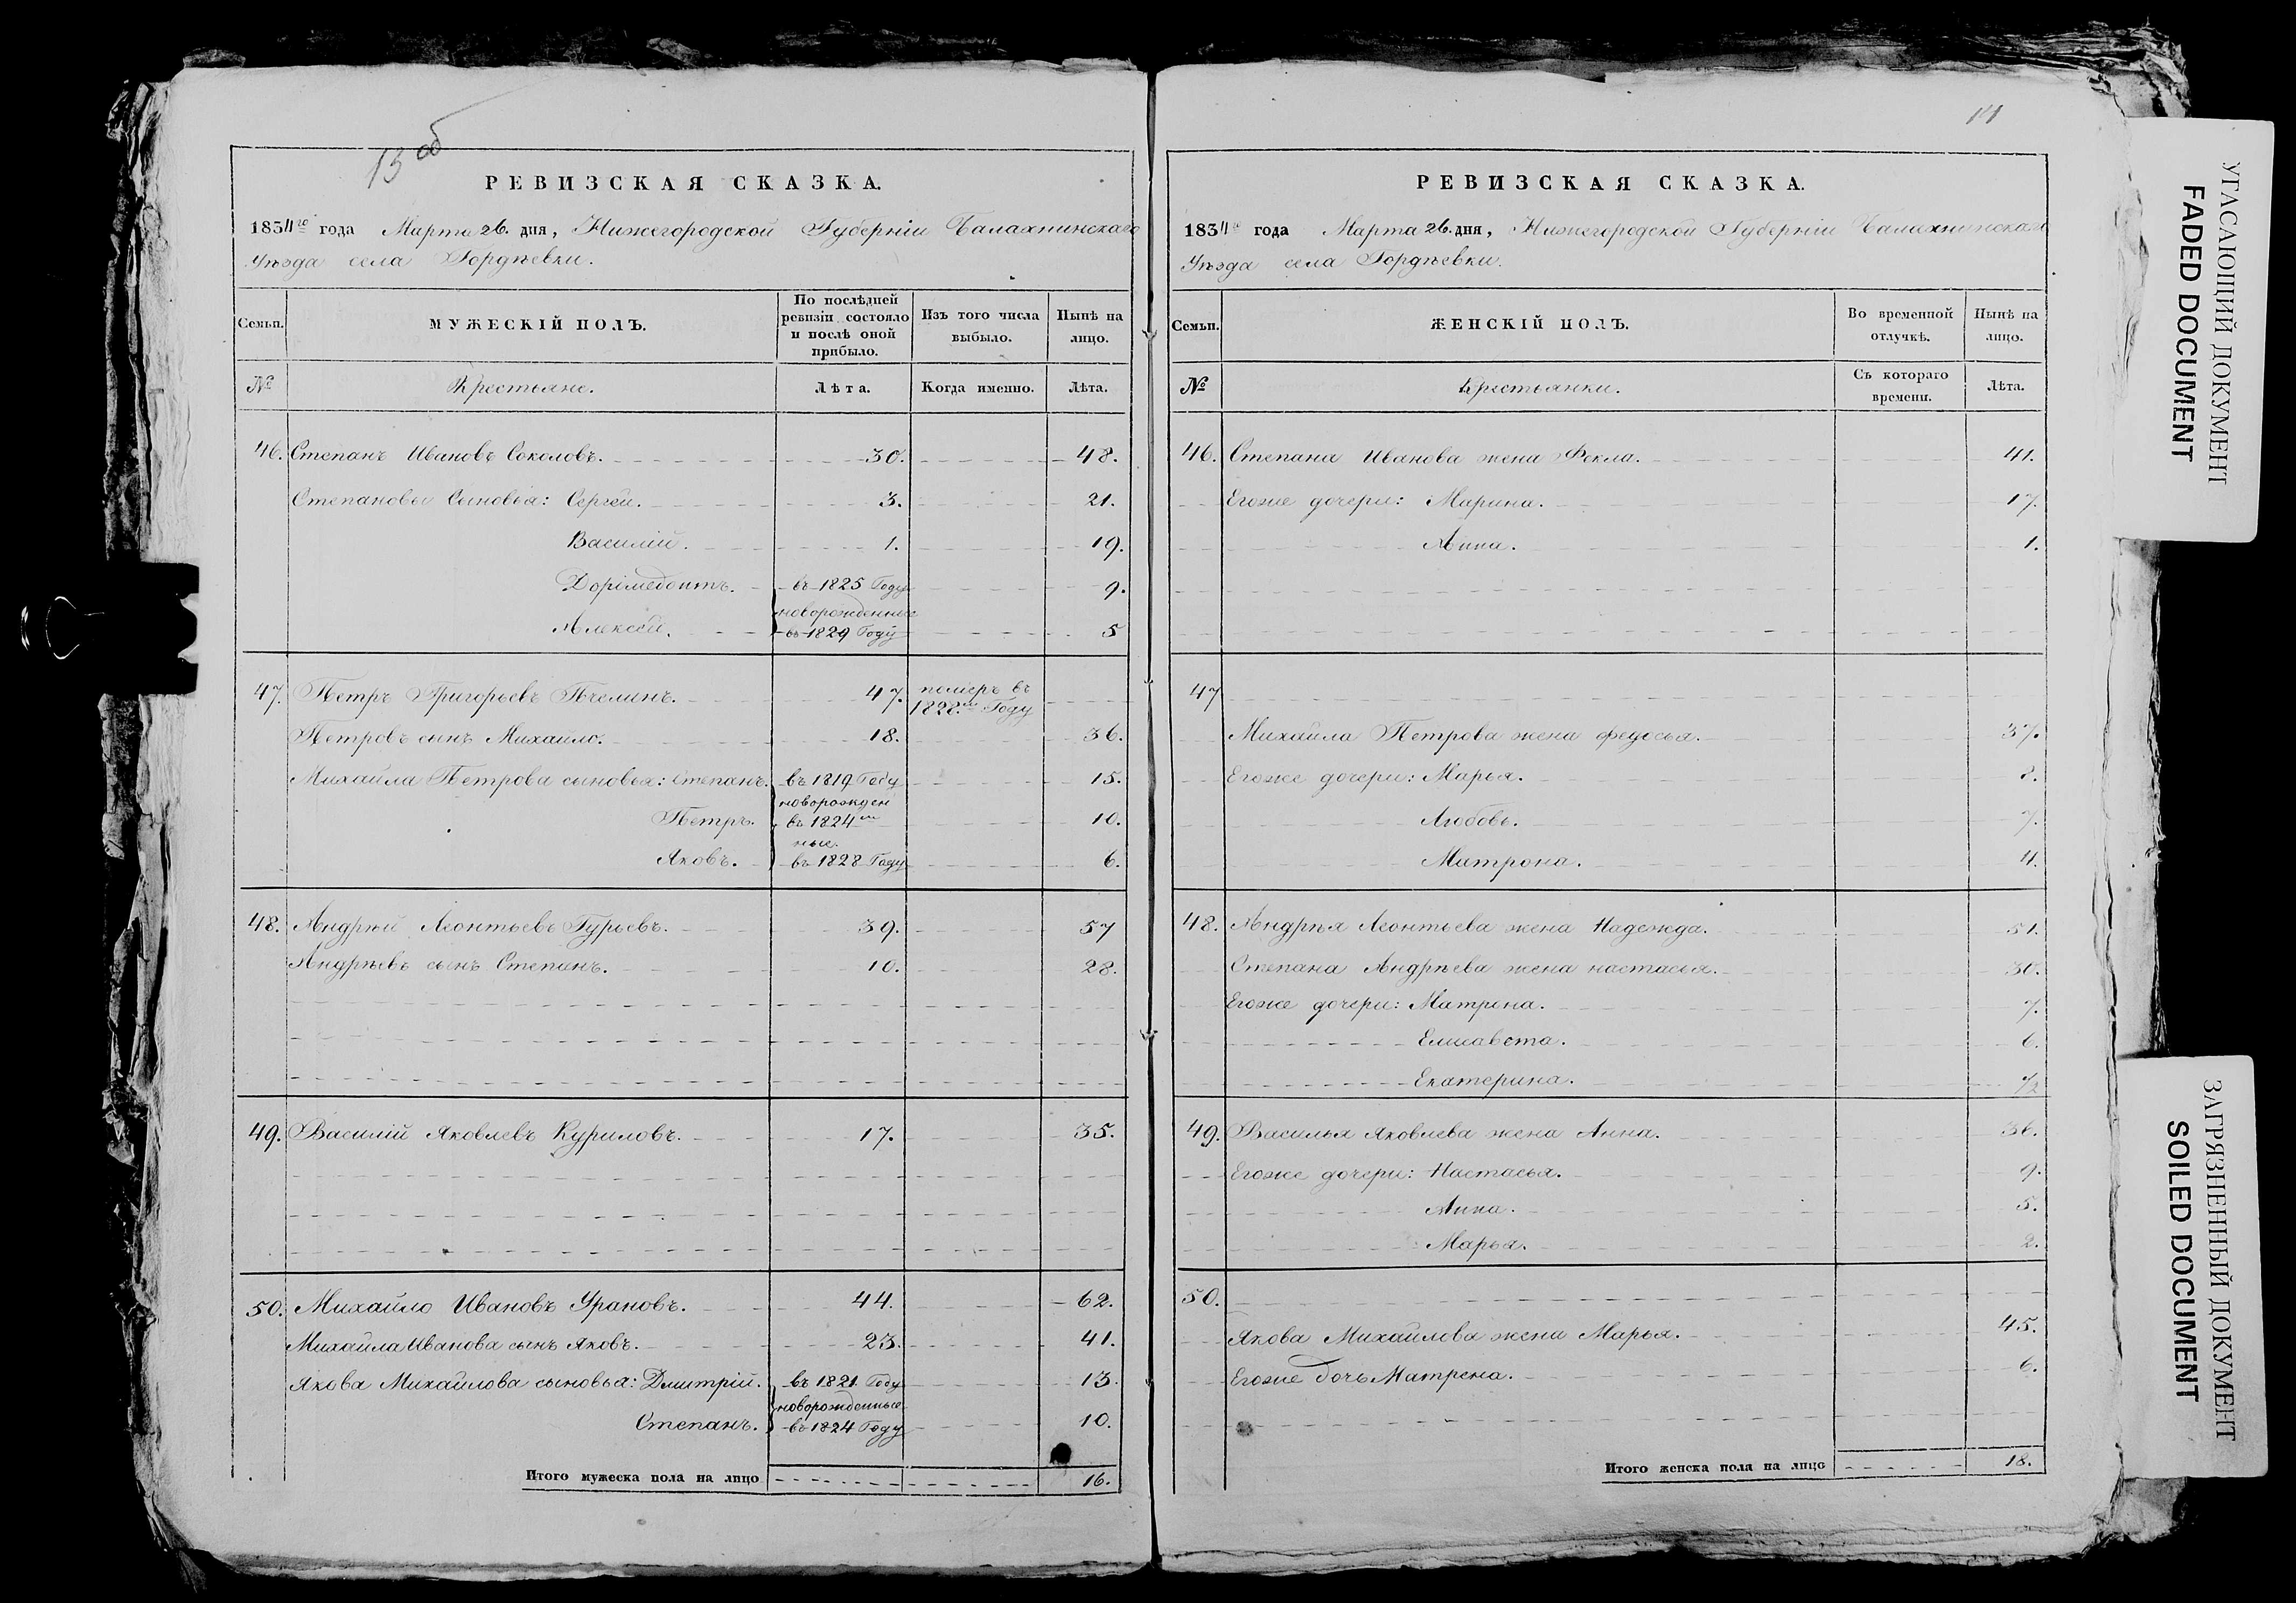 13 об
РЕВИЗСКАЯ СКАЗКА.
1834го года Марта 26. дня, Нижегородской Губерніи Балахнинскаго
Уѣзда села Гордѣевки.
Семьи.
МУЖЕСКІЙ ПОЛЪ.
По послѣдней ревизіи состояло и послѣ оной прибыло.
Изъ того числа выбыло.
Нынѣ на лицо.
№ Крестьяне. Лѣта. Когда именно. Лѣта.
46. Степанъ Ивановъ Соколовъ. 30. 48.
Степановы Сыновья: Сергей. 3. 21.
Василій. 1. 19.
Доримедонтъ. въ 1825 Году 9.
новорожденные
Алексѣй. въ 1829 Году 5
47. Петръ Григорьевъ Пчелинъ. 47. померъ въ 1828м Году
Петровъ сынъ Михайло. 18. 36.
Михайла Петрова сыновья: Степанъ. въ 1819 Году 15.
новорожден
Петръ. въ 1824м 10.
ные.
Яковъ. въ 1828 Году 6.
48. Андрѣй Леонтьевъ Гурьевъ. 39. 57
Андрѣевъ сынъ Степанъ. 10. 28.
49. Василій Яковлевъ Куриловъ. 17. 35.
50. Михайло Ивановъ Урановъ. 44. 62.
Михайла Иванова сынъ Яковъ. 23. 41.
Якова Михайлова сыновья: Дмитрій. въ 1821 Году 13.
новорожденные
Степанъ. въ 1824 Году 10.
Итого мужеска пола на лицо 16.
14
РЕВИЗСКАЯ СКАЗКА.
1834го года Марта 26. дня, Нижегородской Губерніи Балахнинскаго
Уѣзда села Гордѣевки.
Семьи.
ЖЕНСКІЙ ПОЛЪ.
Во временной отлучкѣ.
Нынѣ на лицо.
№ Крестьянки. Съ котораго времени. Лѣта.
46. Степана Иванова жена Фекла. 41.
Егоже дочери: Марина. 17.
Анна. 1.
47
Михайла Петрова жена Федосья. 37.
Егоже дочери: Марья. 8.
Любовь. 7.
Матрона. 4.
48. Андрѣя Леонтьева жена Надежда. 51.
Степана Андрѣева жена настасья. 30.
Егоже дочери: Матрена. 7.
Елисавета. 6.
Екатерина. 1/2
49. Василья Яковлева жена Анна. 36.
Егоже дочери: Настасья. 9.
Анна. 5.
Марья. 2.
50.
Якова Михайлова жена Марья. 45.
Егоже дочь Матрена. 6.
Итого женска пола на лицо 18.
УГАСАЮЩИЙ ДОКУМЕНТ
FADED DOCUMENT
ЗАГРЯЗНЕННЫЙ ДОКУМЕНТ
SOILED DOCUMENT